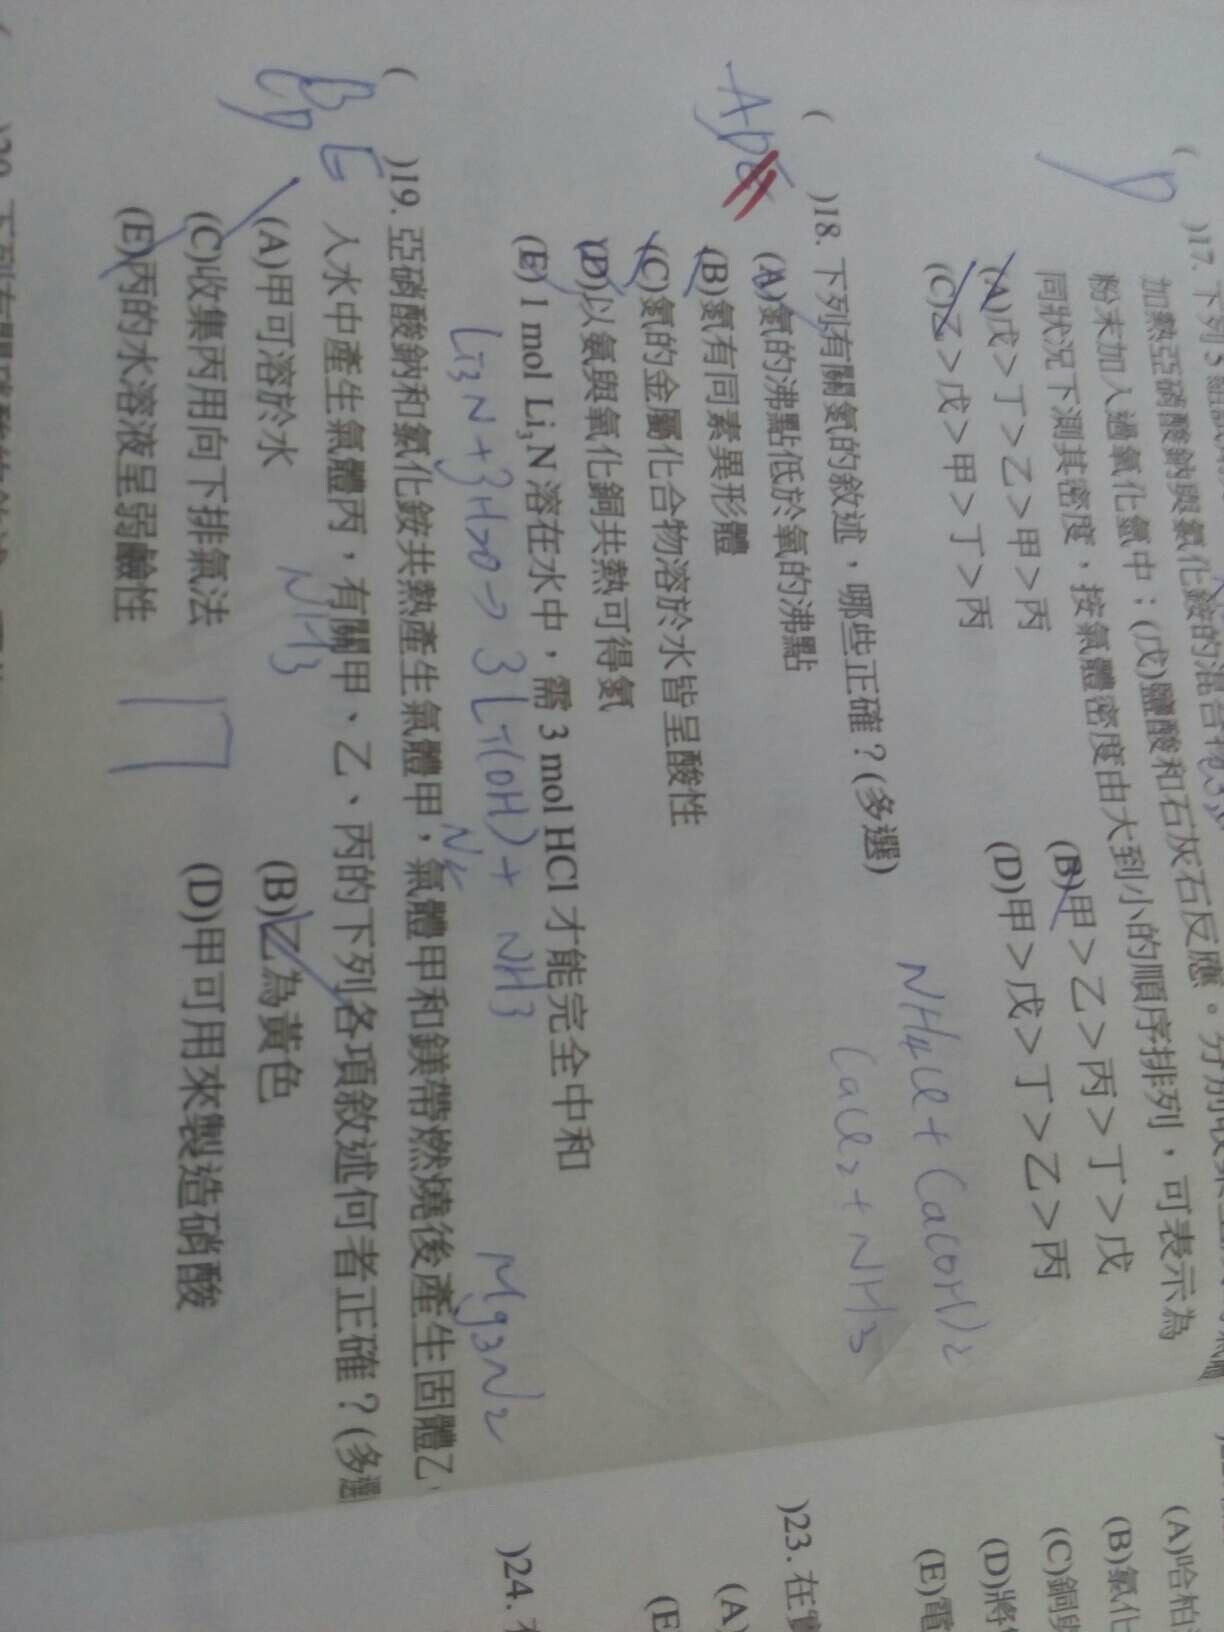 )17. 下列5
加熱亞硝酸鈉與氯化銨的混合物
粉末加入過氧化氫中；(戊)鹽酸和石灰石反應。分別收集
同狀況下測其密度，按氣體密度由大到小的順序排列，可表示為
(A)戊＞丁＞乙＞甲＞丙
(B)甲＞乙＞丙＞丁＞戊
(C)乙＞戊＞甲＞丁＞丙
(D)甲＞戊＞丁＞乙＞丙
NH4Cl + Ca(OH)2
CaCl2 + NH3
( )18. 下列有關氮的敘述，哪些正確？(多選)
(A)氮的沸點低於氧的沸點
(B)氮有同素異形體
(C)氮的金屬化合物溶於水皆呈酸性
(D)以氨與氧化銅共熱可得氮
(E) 1 mol Li₃N 溶在水中，需 3 mol HCl 才能完全中和
Li3N + 3H2O → 3Li(OH) + NH3
Mg3N2
( )19. 亞硝酸鈉和氯化銨共熱產生氣體甲，氣體甲和鎂帶燃燒後產生固體乙，
入水中產生氣體丙，有關甲、乙、丙的下列各項敘述何者正確？(多選
NH3
(A)甲可溶於水
(B)乙為黃色
(C)收集丙用向下排氣法
(D)甲可用來製造硝酸
(E)丙的水溶液呈弱鹼性
(A)哈柏
(B)氯化
(C)銅與
(D)將
(E)電
)23. 在實
(A)
(E
)24.